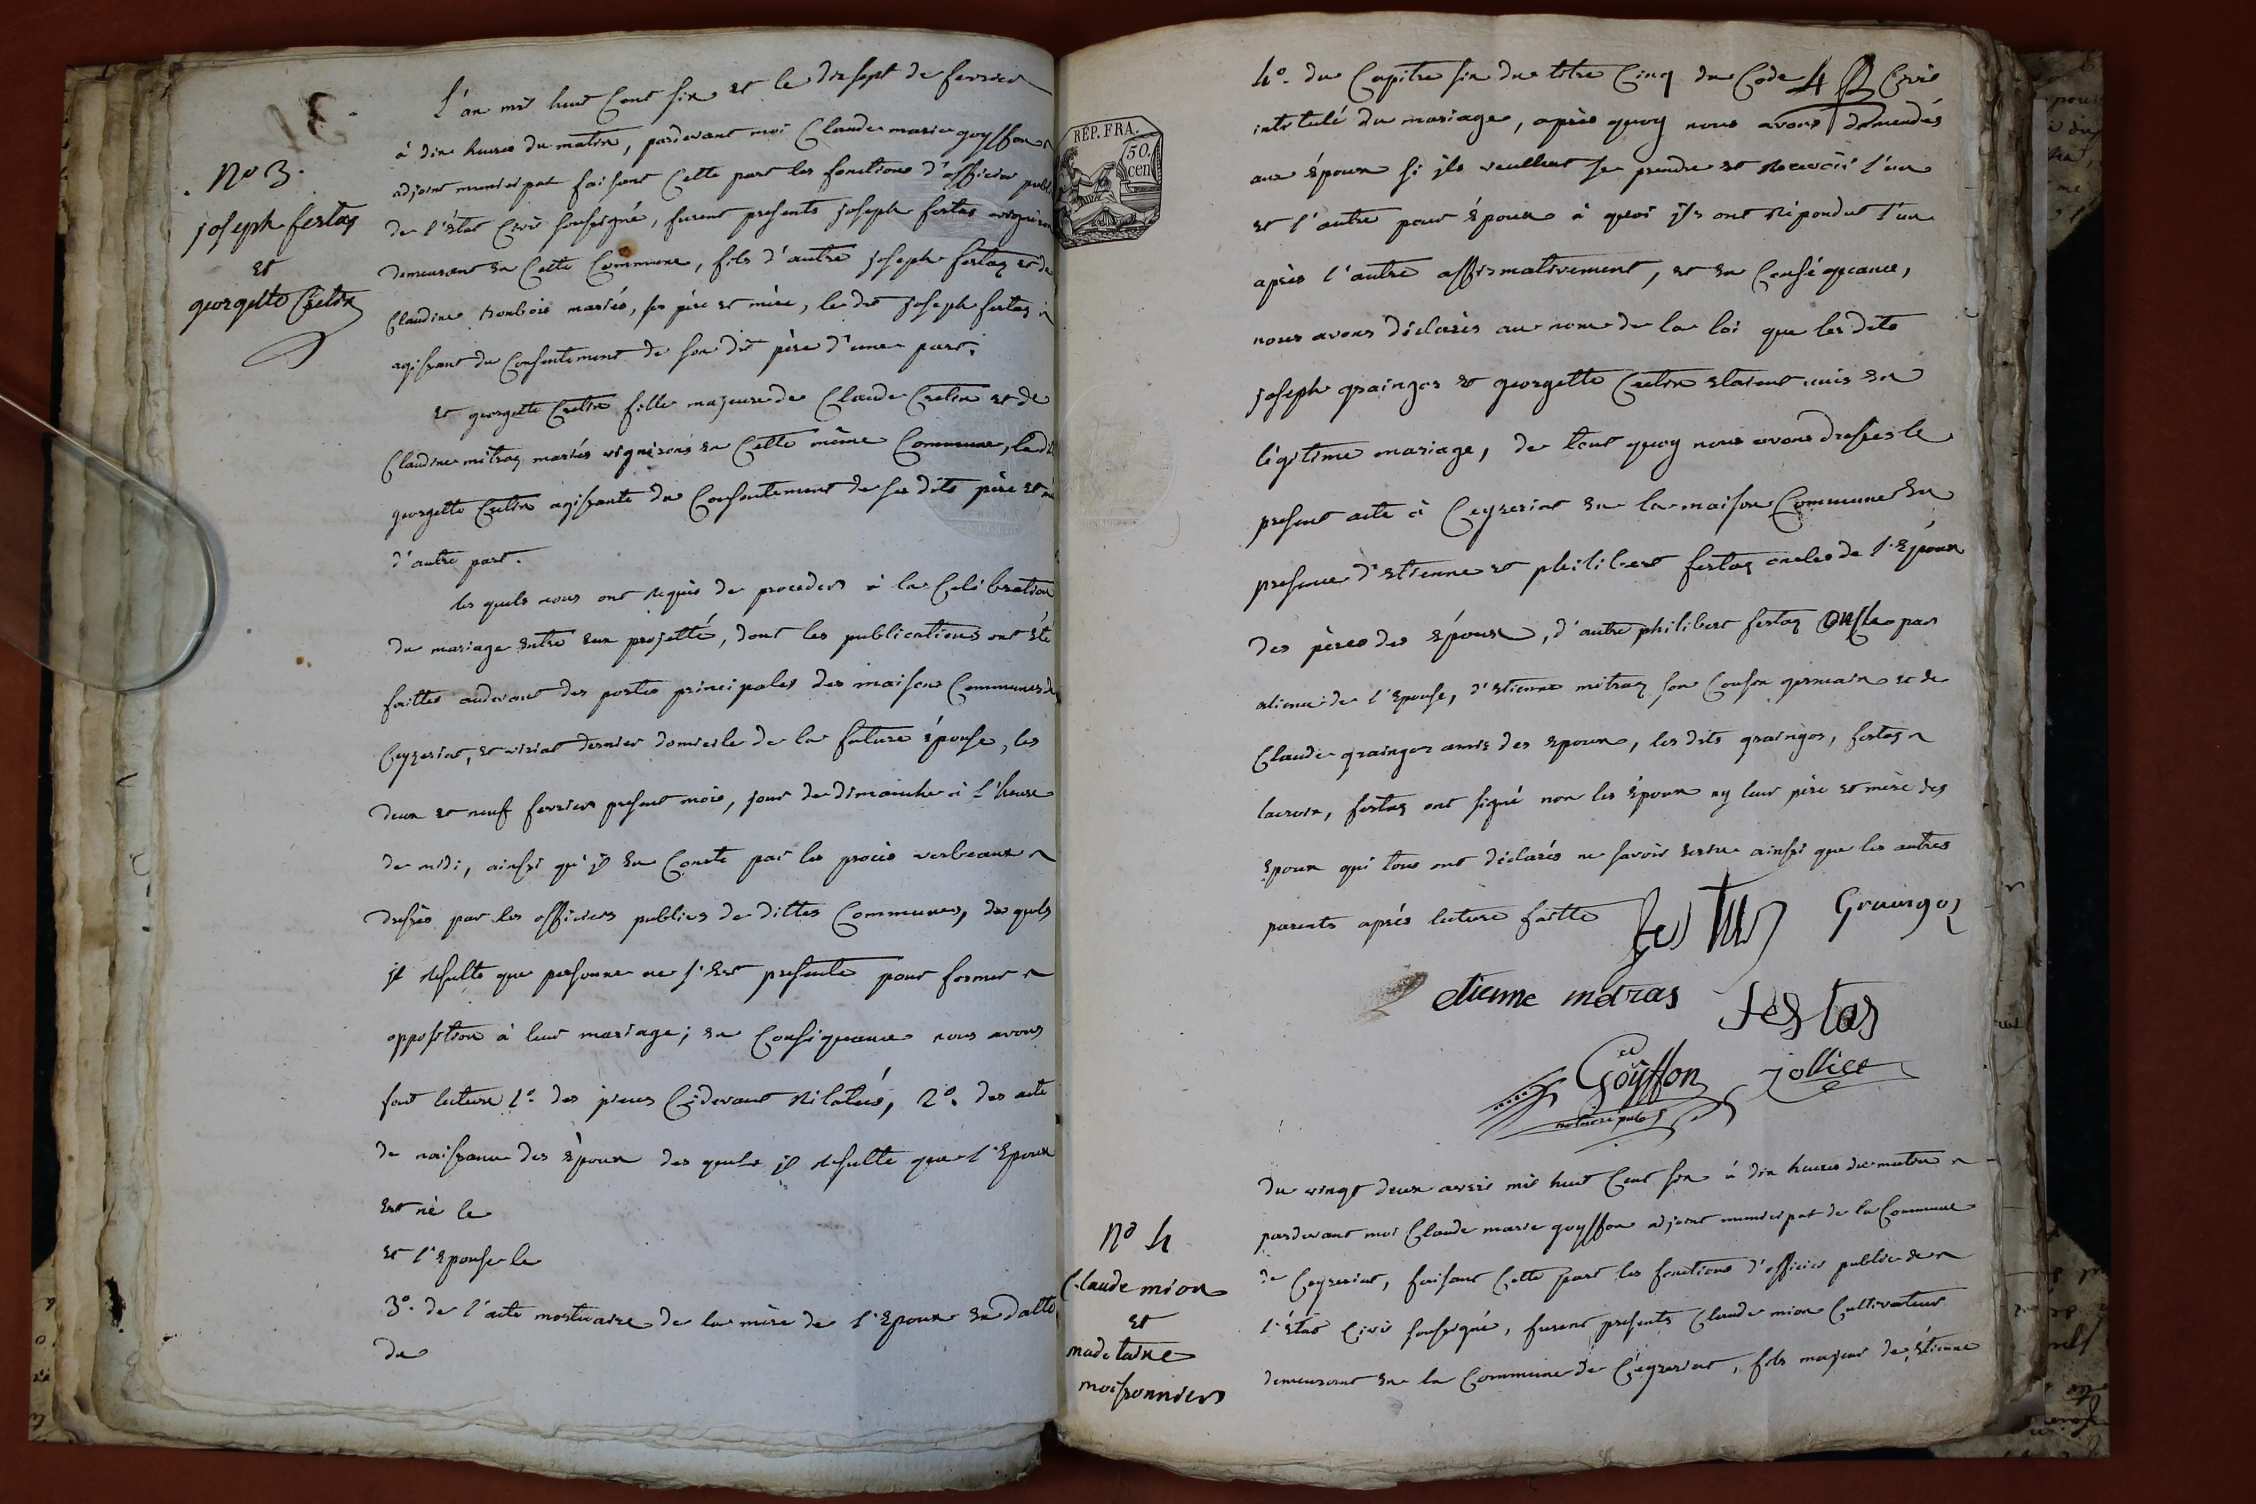 L'an mil huit Cent six et le dix sept de fevrier
à dix heures du matin, pardevant moi Claude marie goyffon
adjoint municipal faisant Cette part les fonctions d'officier publi
de l'état Civil soussigné, furent présents joseph festaz vigneron
demeurant en Cette Commune, fils d'autre joseph festaz et de
Claudine mariés, ses père et mère, le dit joseph festaz
agissant du Consentement de son dit père d'une part;
et georgette Cretin fille majeure de Claude Cretin et de
Claudine mitraz mariés vignerons en Cette même Commune, la dit
georgette Cretin agissante du Consentement de ses dits père et mè
d'autre part.
les quels nous ont requis de proceder à la Celébration
du mariage entre eux projetté, dont les publications ont été
faittes audevant des portes principales des maisons Communes de
Ceyzeriat, et viriat dernier domicile de la future épouse, les
deux et neuf fevrier present mois, jour de dimanche à l'heure
de midi, ainsi qu'il en Conste par les procès verbeaux
dressés par les officiers publics de dittes Communes, des quels
il resulte que personne ne s'est presenté pour former
opposition à leur mariage; en Conséquance nous avons
fait lecture 1º. des pieces Cidevant rélatés, 2º. des acte
de naissance des époux des quels il resulte que l'Epoux
est né le
et l'Epouse le
3º. de l'acte mortuaire de la mère de l'Epoux en datte
du
Nº 3.
joseph festaz
et
georgette Cretin
RÉP. FRA.
50.
cen
4º. du Capitre six du titre Cinq du Code Civil
intitulé du mariage, après quoy nous avons demendés
aux époux si ils veullent se prendre et recevoir l'un
et l'autre pour époux à quoi ils ont répondut l'un
après l'autre affirmativement, et en Conséquance,
nous avons déclarés au nom de la loi que les dits
joseph graingos et georgette Cretin etaient unis en
légitime mariage, de tout quoy nous avons dressés le
present acte à Ceyzeriat en la maison Commune en
presence d'etienne et philibert festaz oncles de l'Epoux
des pères des époux, d'autre philibert festaz oncle par
aliance de l'Epouse, d'etienne mitraz son Cousin germain et de
Claude graingos amis des epoux, les dits graingos, festaz
lacroix, festaz ont signé non les époux ny leur père et mère des
Epoux qui tous ont déclarés ne savoir ecrire ainsi que les autres
parents après lecture faitte
festaz
Graingos
etienne metras
festas
Goyffon
jolliet
Nº 4
Claude mion
et
madelaine
moissonnier
du vingt deux avril mil huit Cent six à dix heures du matin
pardevant moi Claude marie goyffon adjoint municipal de la Commune
de Ceyzeriat, faisant Cette part les fonctions d'officier public de
l'état Civil soussigné, furent présents Claude mion Cultivateur
demeurant en la Commune de Ceyzeriat, fils majeur de Etienne